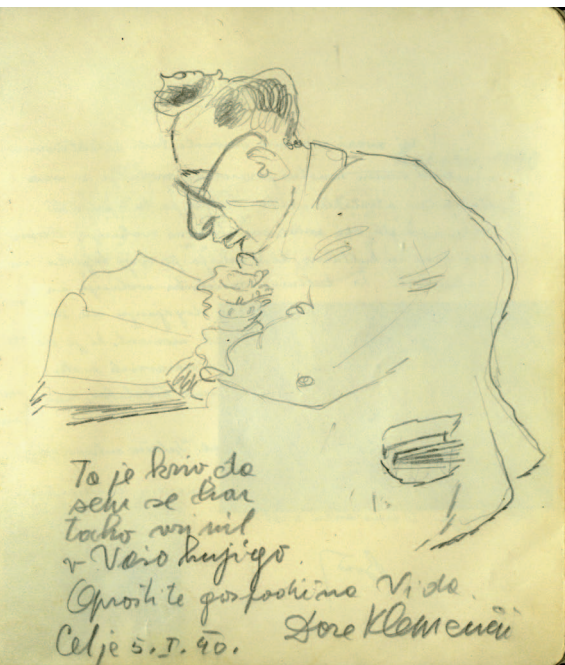 Ta je kriv da
sem se kar
tako vrinil
v Vašo knjigo.
Oprostite gospodična Vida.
Dore Klemenčič
Celje 5. I. 40.